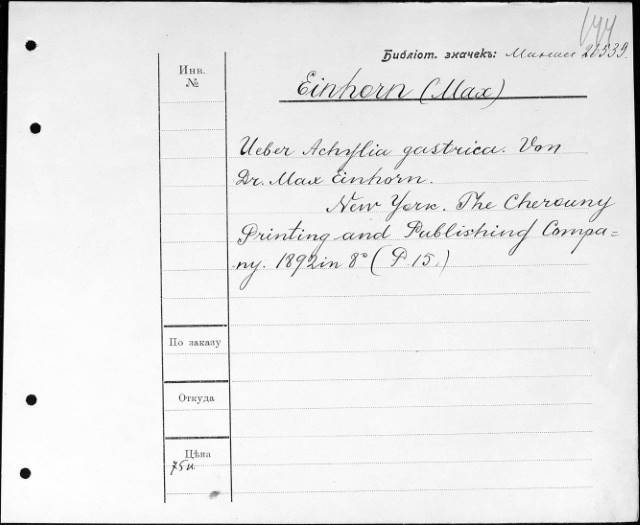 144
Библіот. значекъ: 20539.
Инв.
№
Einhorn (Max)
Ueber Achylia gastrica. Von
Dr. Max Einhorn.
New York. The Cherouny
Printing and Publishing Compa=
ny. 1892 in 8° (P. 15.)
По заказу
Откуда
Цѣна
75к.